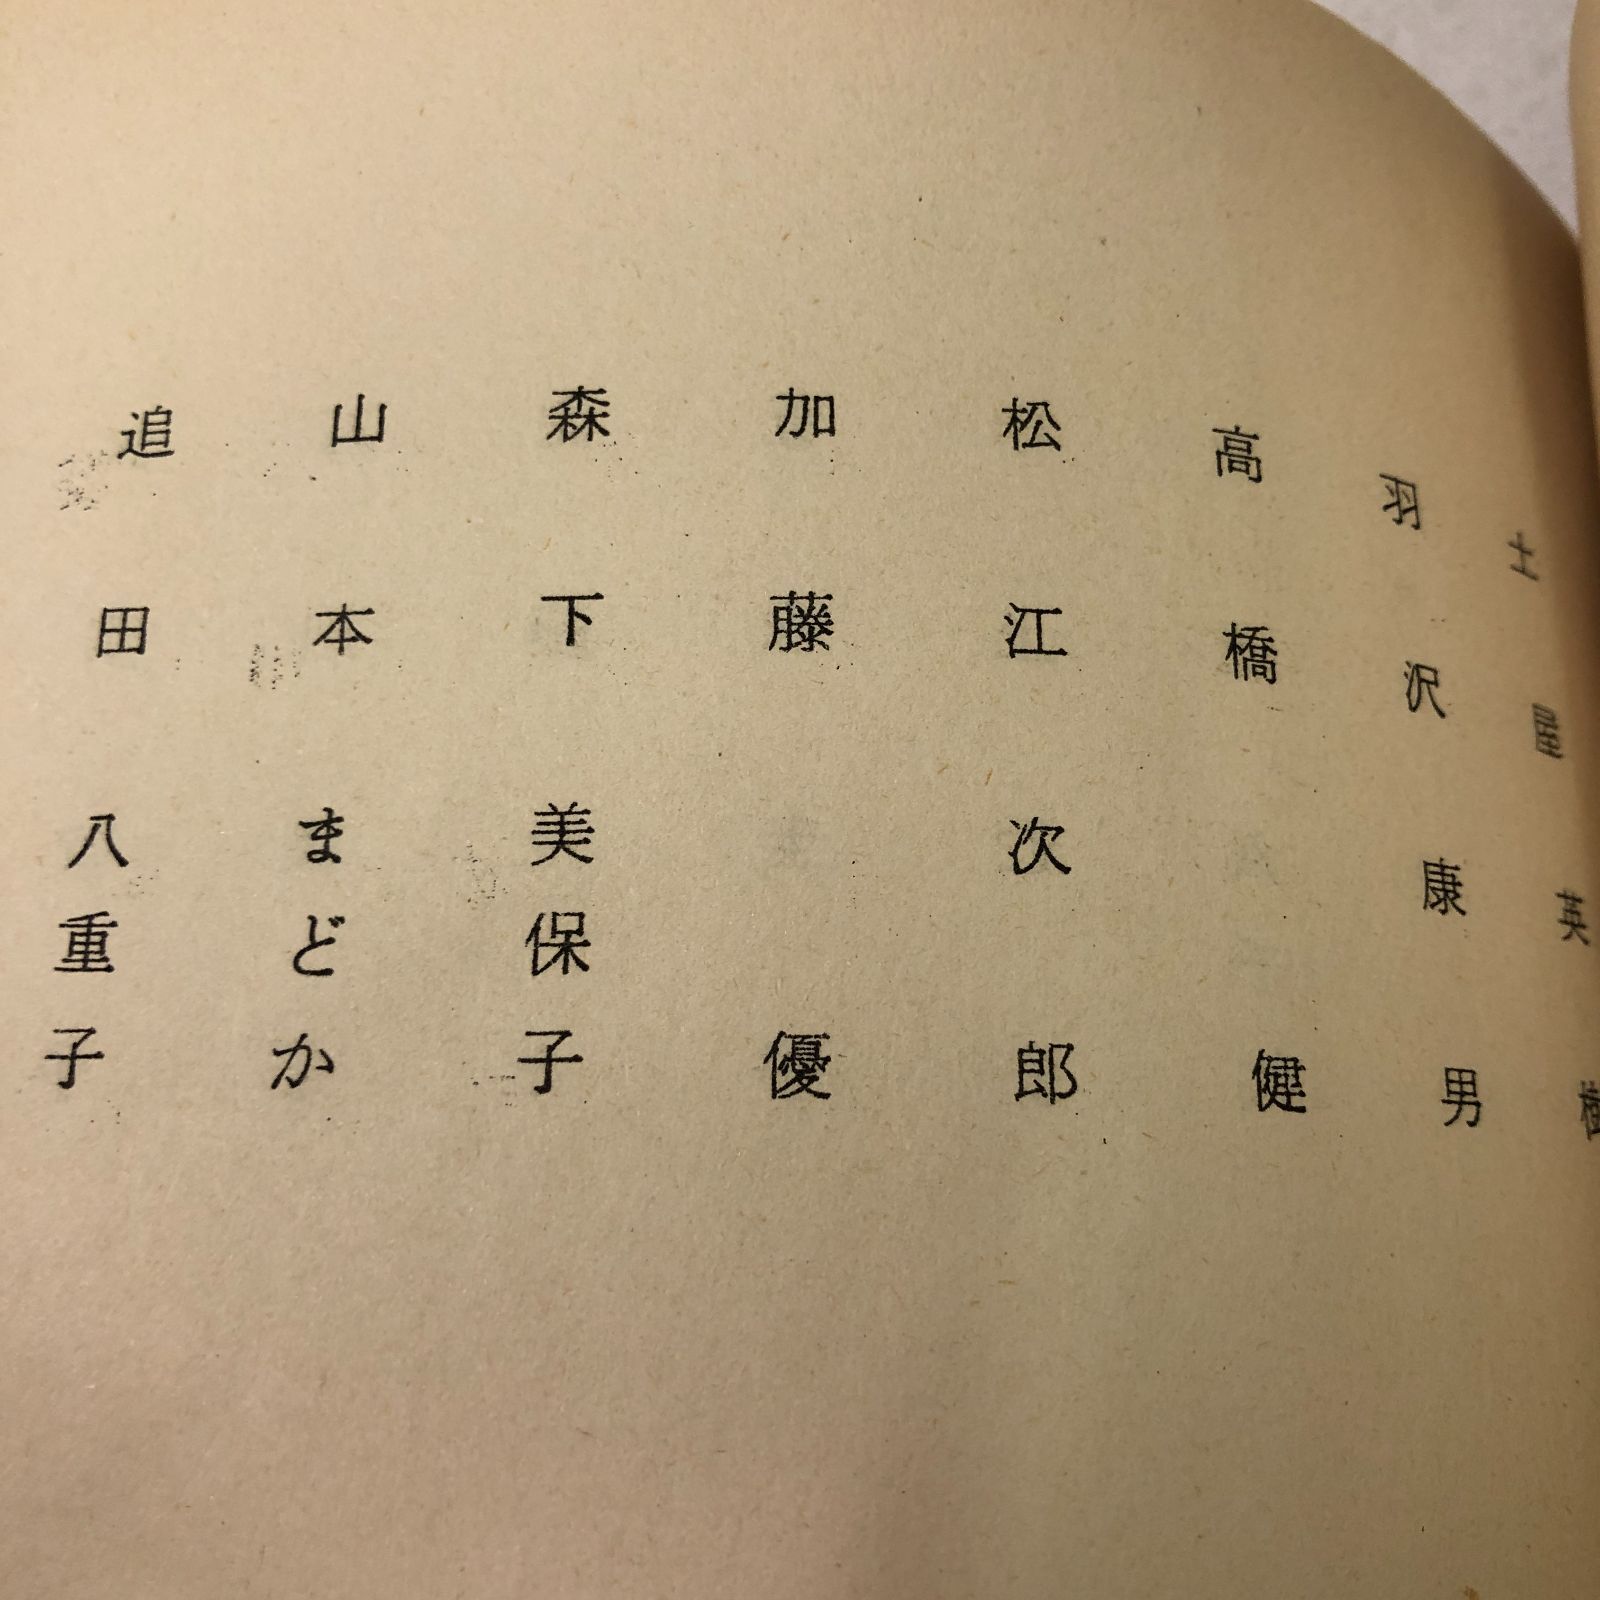 土屋英樹
羽沢康男
高橋健
松江次郎
加藤優
森下美保子
山本まどか
追田八重子